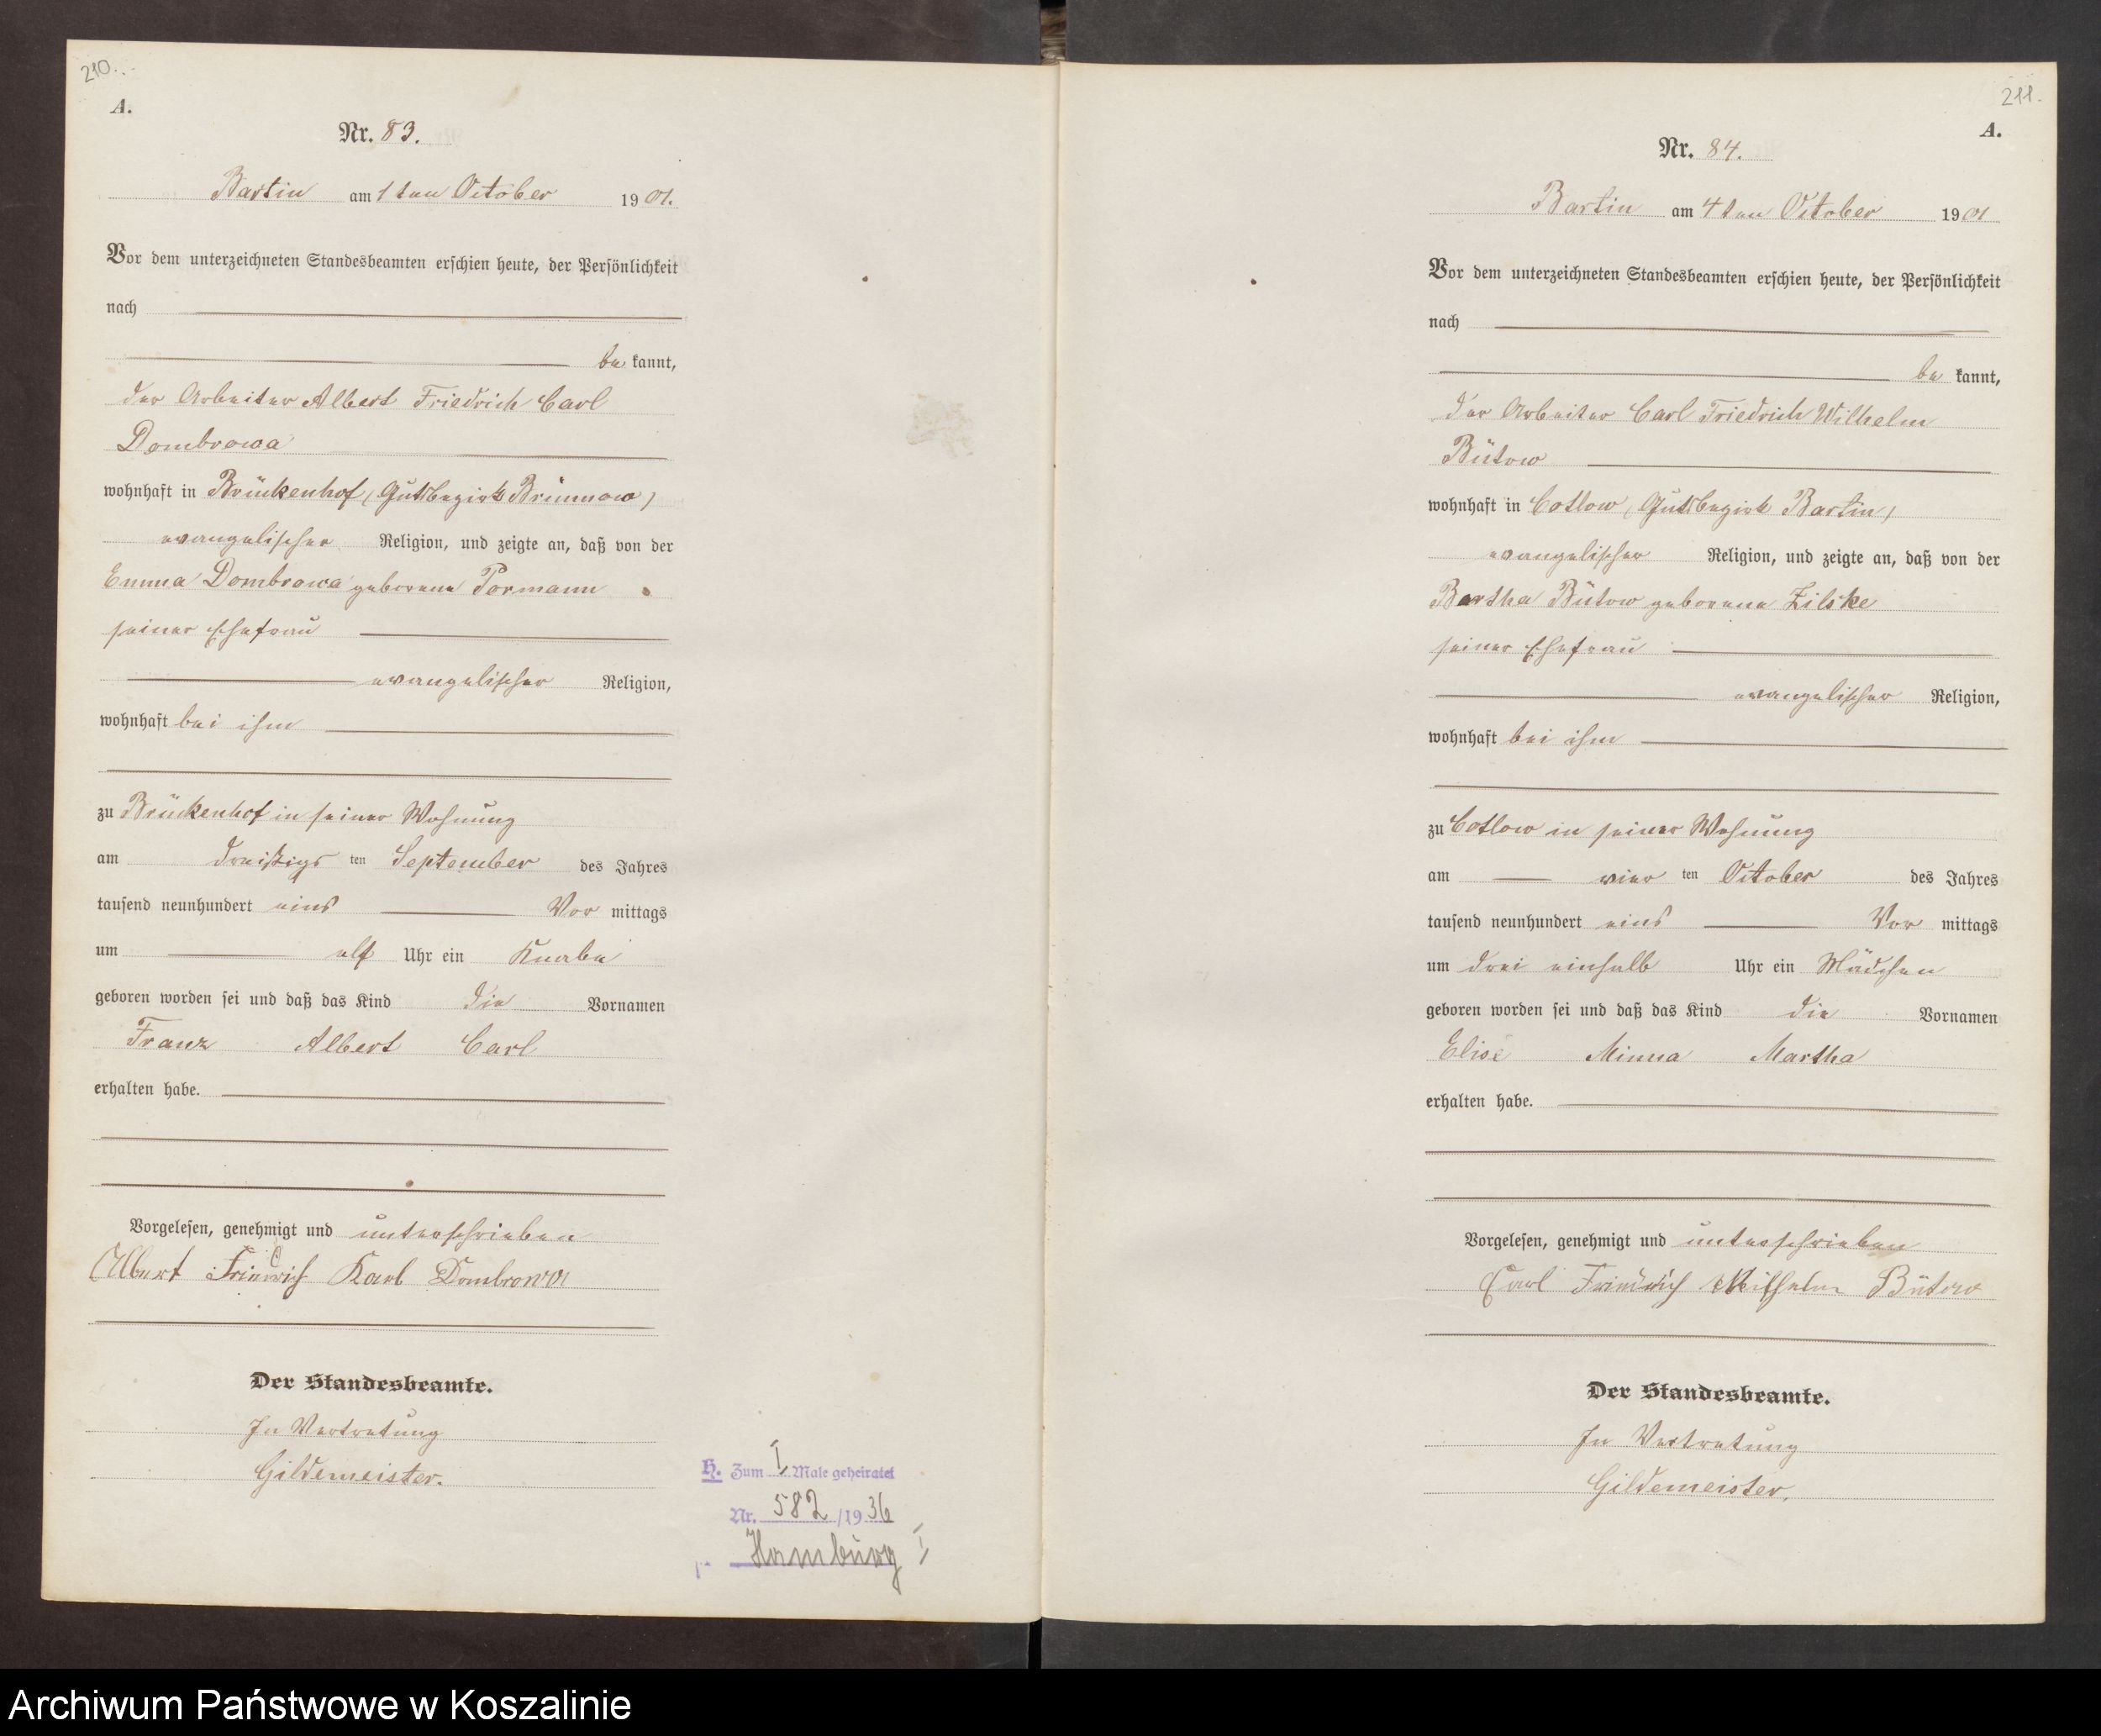 210.
A.
Nr. 83.
Bartin am 1ten October 1901.
Vor dem unterzeichneten Standesbeamten erschien heute, der Persönlichkeit
nach
be kannt,
der Arbeiter Albert Friedrich Carl
Dombrowa
wohnhaft in Brückenhof, (Gutsbezirk Brünnow)
evangelischer Religion, und zeigte an, daß von der
Emma Dombrowa geborene Pormann
seiner Ehefrau
evangelischer Religion,
wohnhaft bei ihm
zu Brückenhof in seiner Wohnung
am dreißigs ten September des Jahres
tausend neunhundert eins Vor mittags
um elf Uhr ein Knabe
geboren worden sei und daß das Kind die Vornamen
Franz Albert Carl
erhalten habe.
Vorgelesen, genehmigt und unterschrieben
Albert Friedrich Karl Dombrowa
Der Standesbeamte.
In Vertretung
Gildemeister.
H. Zum I Male geheiratet
Nr. 582/1936
Hamburg I
211.
A.
Nr. 84.
Bartin am 4ten October 1901
Vor dem unterzeichneten Standesbeamten erschien heute, der Persönlichkeit
nach
be kannt,
der Arbeiter Carl Friedrich Wilhelm
Bütow
wohnhaft in Cotlow, (Gutsbezirk Bartin)
evangelischer Religion, und zeigte an, daß von der
Bertha Bütow geborene Zilske
seiner Ehefrau
evangelischer Religion,
wohnhaft bei ihm
zu Cotlow in seiner Wohnung
am vier ten October des Jahres
tausend neunhundert eins Vor mittags
um drei einhalb Uhr ein Mädchen
geboren worden sei und daß das Kind die Vornamen
Elise Minna Martha
erhalten habe.
Vorgelesen, genehmigt und unterschrieben
Carl Friedrich Wilhelm Bütow
Der Standesbeamte.
In Vertretung
Gildemeister.
Archiwum Państwowe w Koszalinie